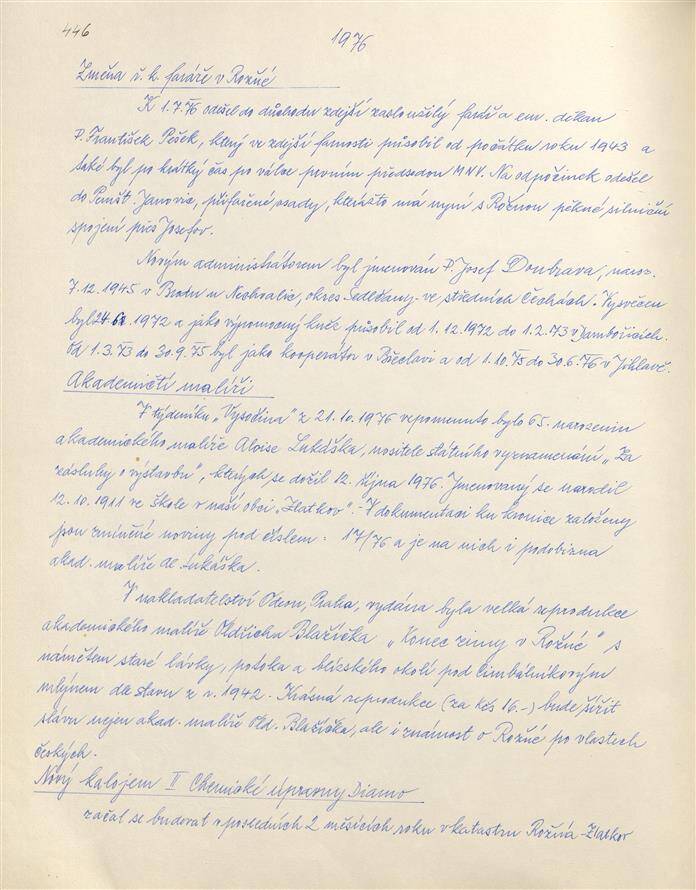 446
1976
Změna ř. k. faráře v Rožné
K 1.7.76 odešel do důchodu zdejší zasloužilý farář a em. děkan
P. František Pešek, který ve zdejší farnosti působil od počátku roku 1943 a
také byl po krátký čas po válce prvním předsedou MNV. Na odpočinek odešel
do Pernšt. Janovic, přifařené osady, kterážto má nyní s Rožnou pěkné silniční
spojení přes Josefov.
Novým administrátorem byl jmenován P. Josef Doubrava, naroz.
7.12.1945 v Brodu u Nechvalic, okres Sedlčany - ve středních Čechách. Vysvěcen
byl 24.6. 1972 a jako výpomocný kněz působil od 1.12.1972 do 1.2.73 v Jambořicích.
Od 1.3.73 do 30.9.75 byl jako kooperátor v Břeclavi a od 1.10.75 do 30.6.76 v Jihlavě.
Akademičtí malíři
V týdeníku „Vysočina" z 21.10.1976 vzpomenuto bylo 65. narozenin
akademického malíře Aloise Lukáška, nositele státního vyznamenání „Za
zásluhy o výstavbu", kterých se dožil 12. října 1976. Jmenovaný se narodil
12.10.1911 ve škole v naší obci „Zlatkov". - V dokumentaci ku kronice založeny
jsou zmíněné noviny pod číslem: 17/76 a je na nich i podobizna
akad. malíře Al. Lukáška.
V nakladatelství Odeon, Praha, vydána byla velká reprodukce
akademického malíře Oldřicha Blažíčka „Konec zimy v Rožné" s
námětem staré lávky, potoka a blízského okolí pod Cimbálníkovým
mlýnem dle stavu z r. 1942. Krásná reprodukce (za Kčs 16.-) bude šířit
slávu nejen akad. malíře Old. Blažíčka, ale i známost o Rožné po vlastech
českých.
Nový kalojem II Chemické úpravny Diamo
začal se budovat v posledních 2 měsících roku v katastru Rožná-Zlatkov